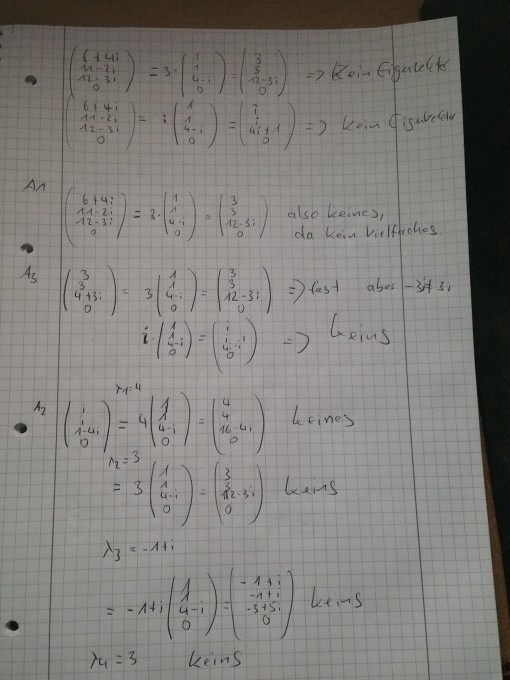 (6+4i, 11-2i, 12-3i, 0) = 3· (1, 1, 4-i, 0) = (3, 3, 12-3i, 0) => Kein Eigenvektor
(6+4i, 11-2i, 12-3i, 0) = i (1, 1, 4-i, 0) = (i, i, 4i+1, 0) => kein Eigenvektor
A1 (6+4i, 11-2i, 12-3i, 0) = 3· (1, 1, 4-i, 0) = (3, 3, 12-3i, 0) also keines,
da kein Vielfaches
A3 (3, 3, 4+3i, 0) = 3 (1, 1, 4-i, 0) = (3, 3, 12-3i, 0) => fast aber -3i≠3i
i· (1, 1, 4-i, 0) = (i, i, 4i-i², 0) => keins
λ1=4
A2 (i, i, 1-4i, 0) = 4 (1, 1, 4-i, 0) = (4, 4, 16-4i, 0) keines
λ2=3
= 3 (1, 1, 4-i, 0) = (3, 3, 12-3i, 0) keins
λ3 = -1+i
= -1+i (1, 1, 4-i, 0) = (-1+i, -1+i, -3+5i, 0) keins
λ4=3 keins